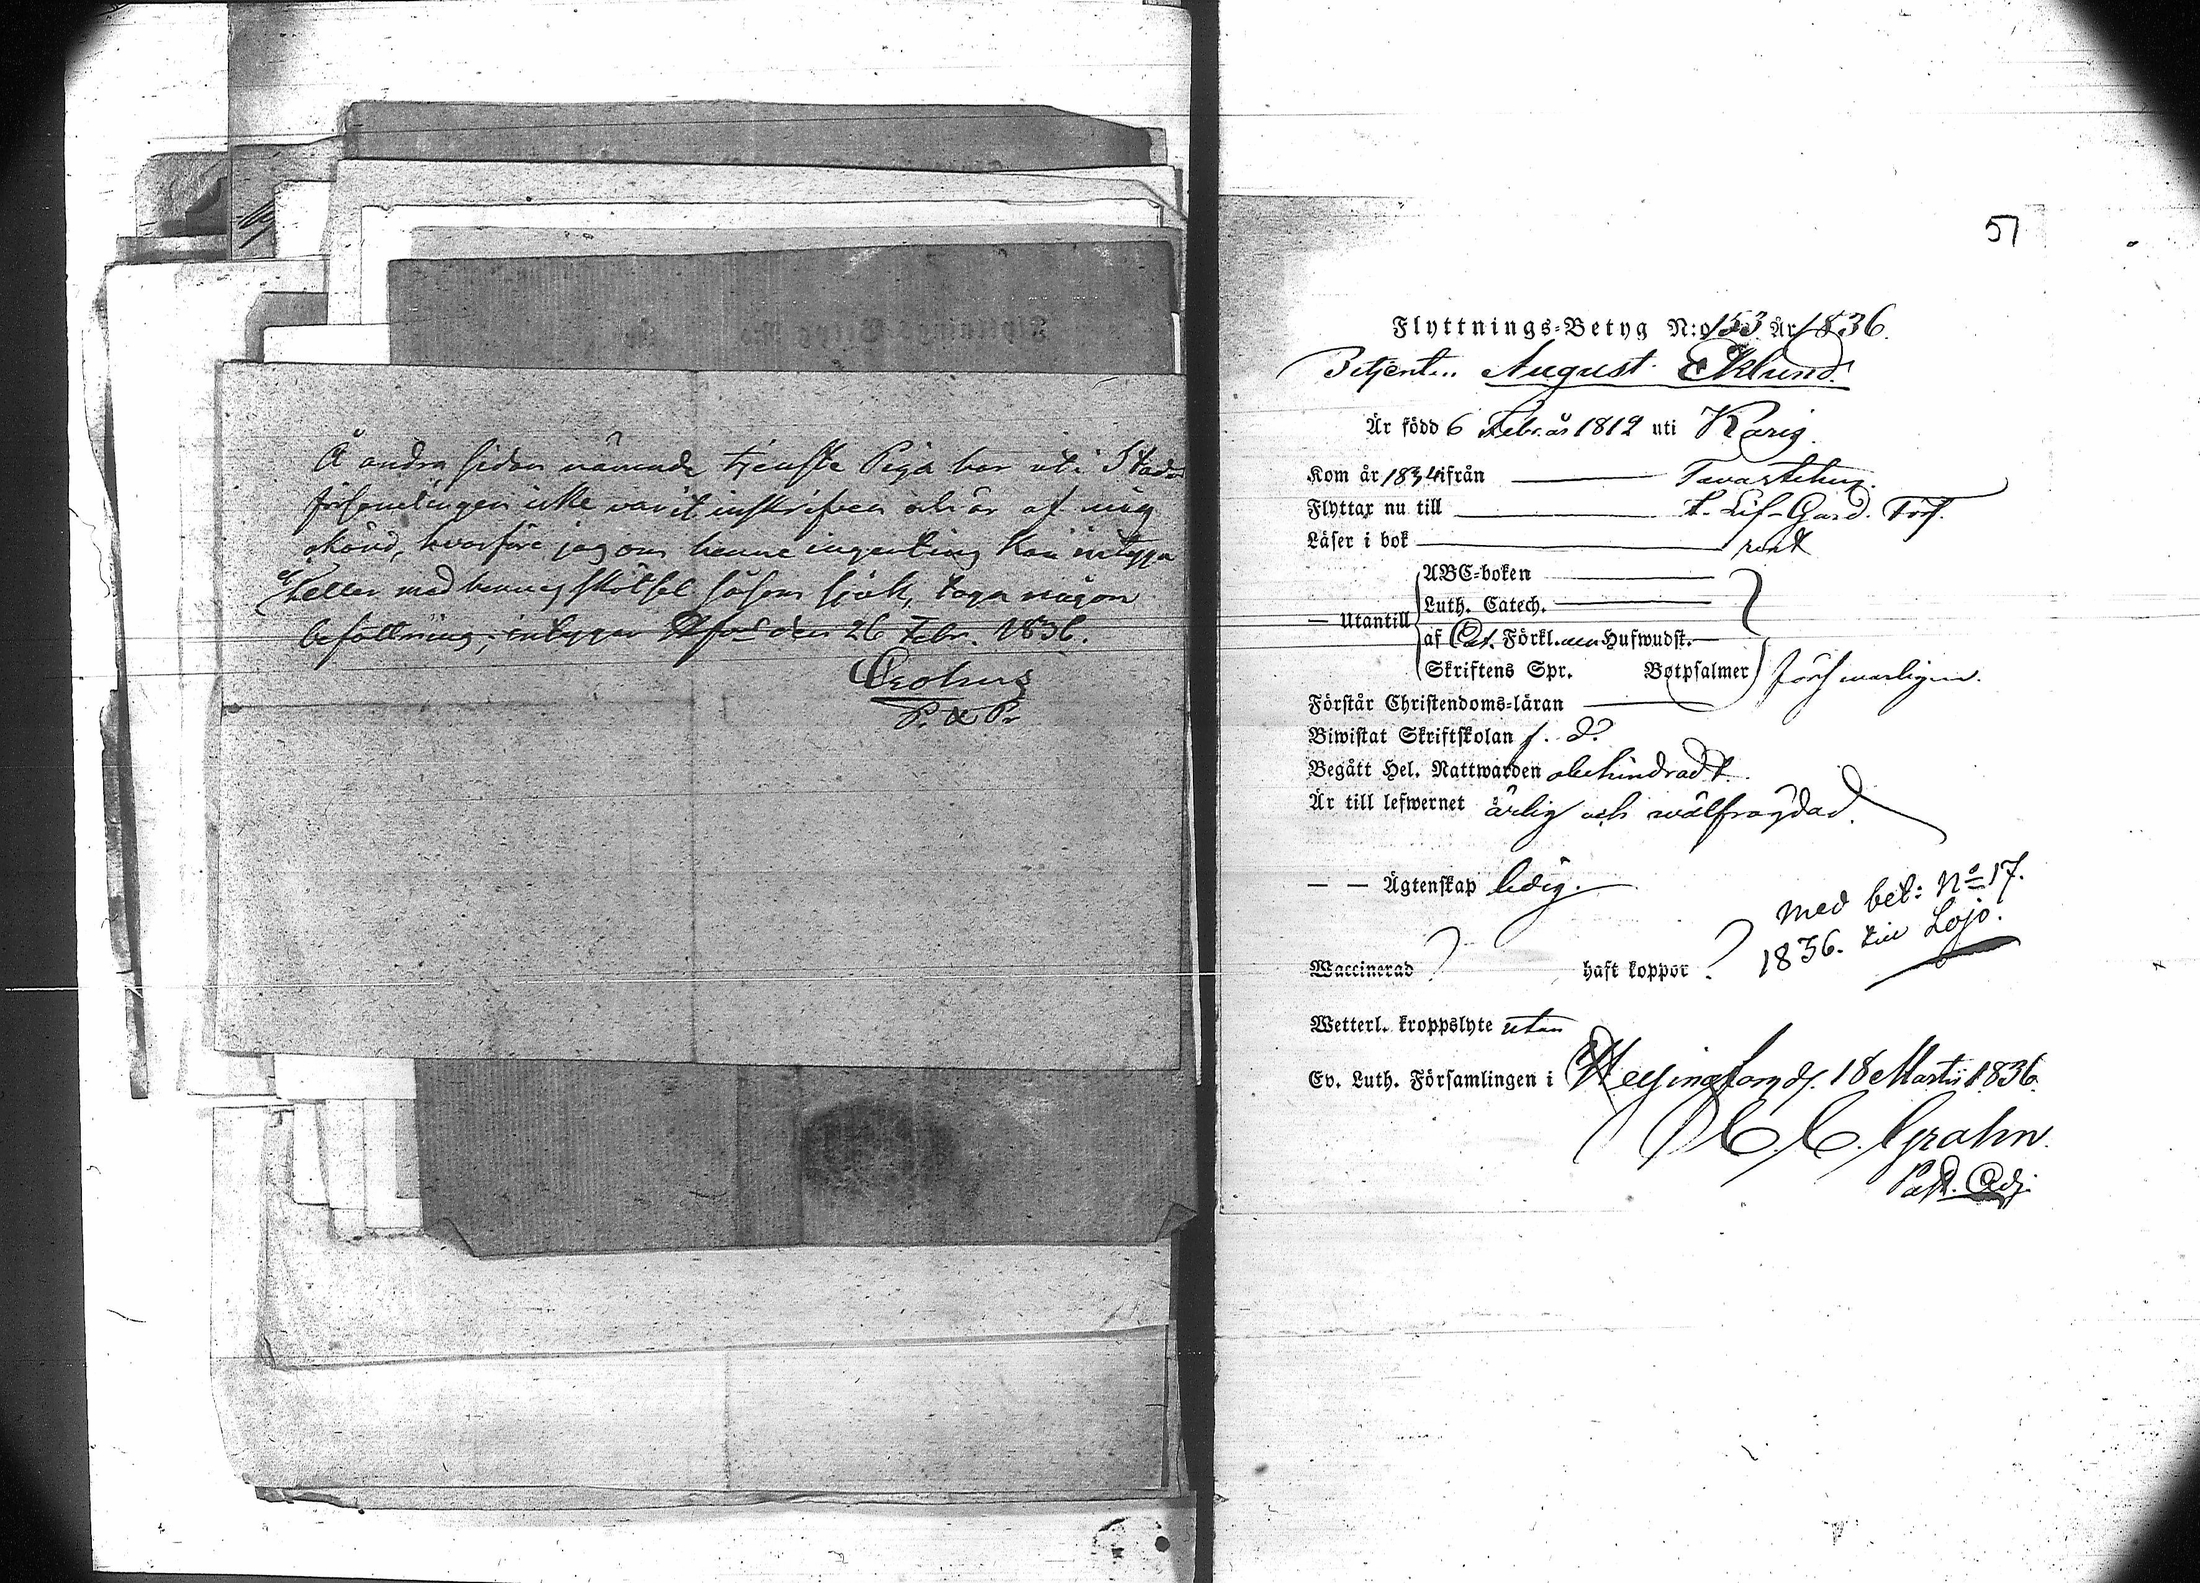 Å andra sidan nämnde tjenste Piga har uti Stads
församlingen icke varit inskrifven och är af mig
okänd, hvarföre jag om henne ingenting kan intyga
eller med hennes skötsel såsom sjuk, taga någon
befattning, intygar den 26 Febr. 1836.
Crohns
P. & Pr
51
Flyttnings-Betyg N:o 153 År 1836.
Betjent.. August Eklund.
Är född 6 Febr. år 1812 uti Karis.
Kom år 1834 ifrån Tavastehus.
Flyttar nu till L. Lif-Gard. Förs.
Läser i bok rent
ABC-boken
Luth. Catech.
— Utantill
af Cat. Förkl. Hufwudst.
Skriftens Spr. Botpsalmer försvarligen.
Förstår Christendoms-läran
Biwistat Skriftskolan f. d:
Begått Hel. Nattwarden obehindradt.
Är till lefwernet ärlig och wälfrägdad.
— — Ägtenskap ledig.
med bet: No 17.
1836. till Lojo.
Waccinerad ? haft koppor ?
Wetterl. kroppslyte utan
Ev. Luth. Församlingen i Helsingfors d. 18 Martii 1836.
C. C. Grahn.
Past. Adj.